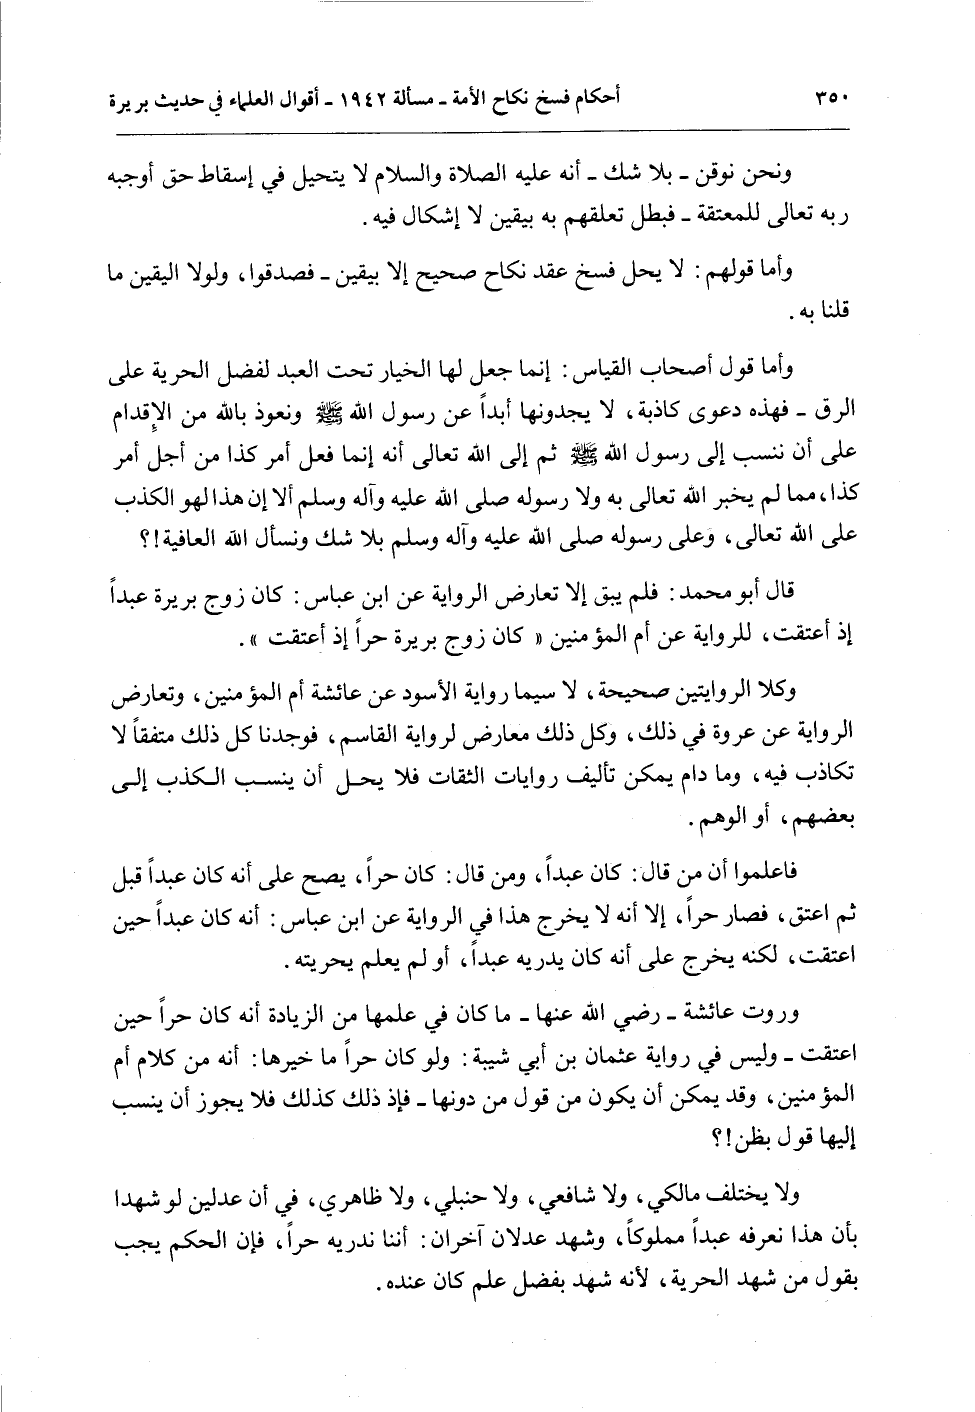 ٣٥٠ أحكام فسخ نكاح الأمة ـ مسألة ١٩٤٢ ـ أقوال العلماء في حديث بريرة
ونحن نوقن ـ بلا شك ـ أنه عليه الصلاة والسلام لا يتحيل في إسقاط حق أوجبه
ربه تعالى للمعتقة ـ فبطل تعلقهم به بيقين لا إشكال فيه.
وأما قولهم: لا يحل فسخ عقد نكاح صحيح إلا بيقين ـ فصدقوا، ولولا اليقين ما
قلنا به.
وأما قول أصحاب القياس: إنما جعل لها الخيار تحت العبد لفضل الحرية على
الرق ـ فهذه دعوى كاذبة، لا يجدونها أبداً عن رسول الله ﷺ ونعوذ بالله من الإقدام
على أن ننسب إلى رسول الله ﷺ ثم إلى الله تعالى أنه إنما فعل أمر كذا من أجل أمر
كذا، مما لم يخبر الله تعالى به ولا رسوله صلى الله عليه وآله وسلم ألا إن هذا لهو الكذب
على الله تعالى، وعلى رسوله صلى الله عليه وآله وسلم بلا شك ونسأل الله العافية!؟
قال أبو محمد: فلم يبق إلا تعارض الرواية عن ابن عباس: كان زوج بريرة عبداً
إذ أعتقت، للرواية عن أم المؤمنين « كان زوج بريرة حراً إذ أعتقت ».
وكلا الروايتين صحيحة، لا سيما رواية الأسود عن عائشة أم المؤمنين، وتعارض
الرواية عن عروة في ذلك، وكل ذلك معارض لرواية القاسم، فوجدنا كل ذلك متفقاً لا
تكاذب فيه، وما دام يمكن تأليف روايات الثقات فلا يحل أن ينسب الكذب إلى
بعضهم، أو الوهم.
فاعلموا أن من قال: كان عبداً، ومن قال: كان حراً، يصح على أنه كان عبداً قبل
ثم اعتق، فصار حراً، إلا أنه لا يخرج هذا في الرواية عن ابن عباس: أنه كان عبداً حين
اعتقت، لكنه يخرج على أنه كان يدريه عبداً، أو لم يعلم بحريته.
وروت عائشة ـ رضي الله عنها ـ ما كان في علمها من الزيادة أنه كان حراً حين
اعتقت ـ وليس في رواية عثمان بن أبي شيبة: ولو كان حراً ما خيرها: أنه من كلام أم
المؤمنين، وقد يمكن أن يكون من قول من دونها ـ فإذ ذلك كذلك فلا يجوز أن ينسب
إليها قول بظن!؟
ولا يختلف مالكي، ولا شافعي، ولا حنبلي، ولا ظاهري، في أن عدلين لو شهدا
بأن هذا نعرفه عبداً مملوكاً، وشهد عدلان آخران: أننا ندريه حراً، فإن الحكم يجب
بقول من شهد الحرية، لأنه شهد بفضل علم كان عنده.